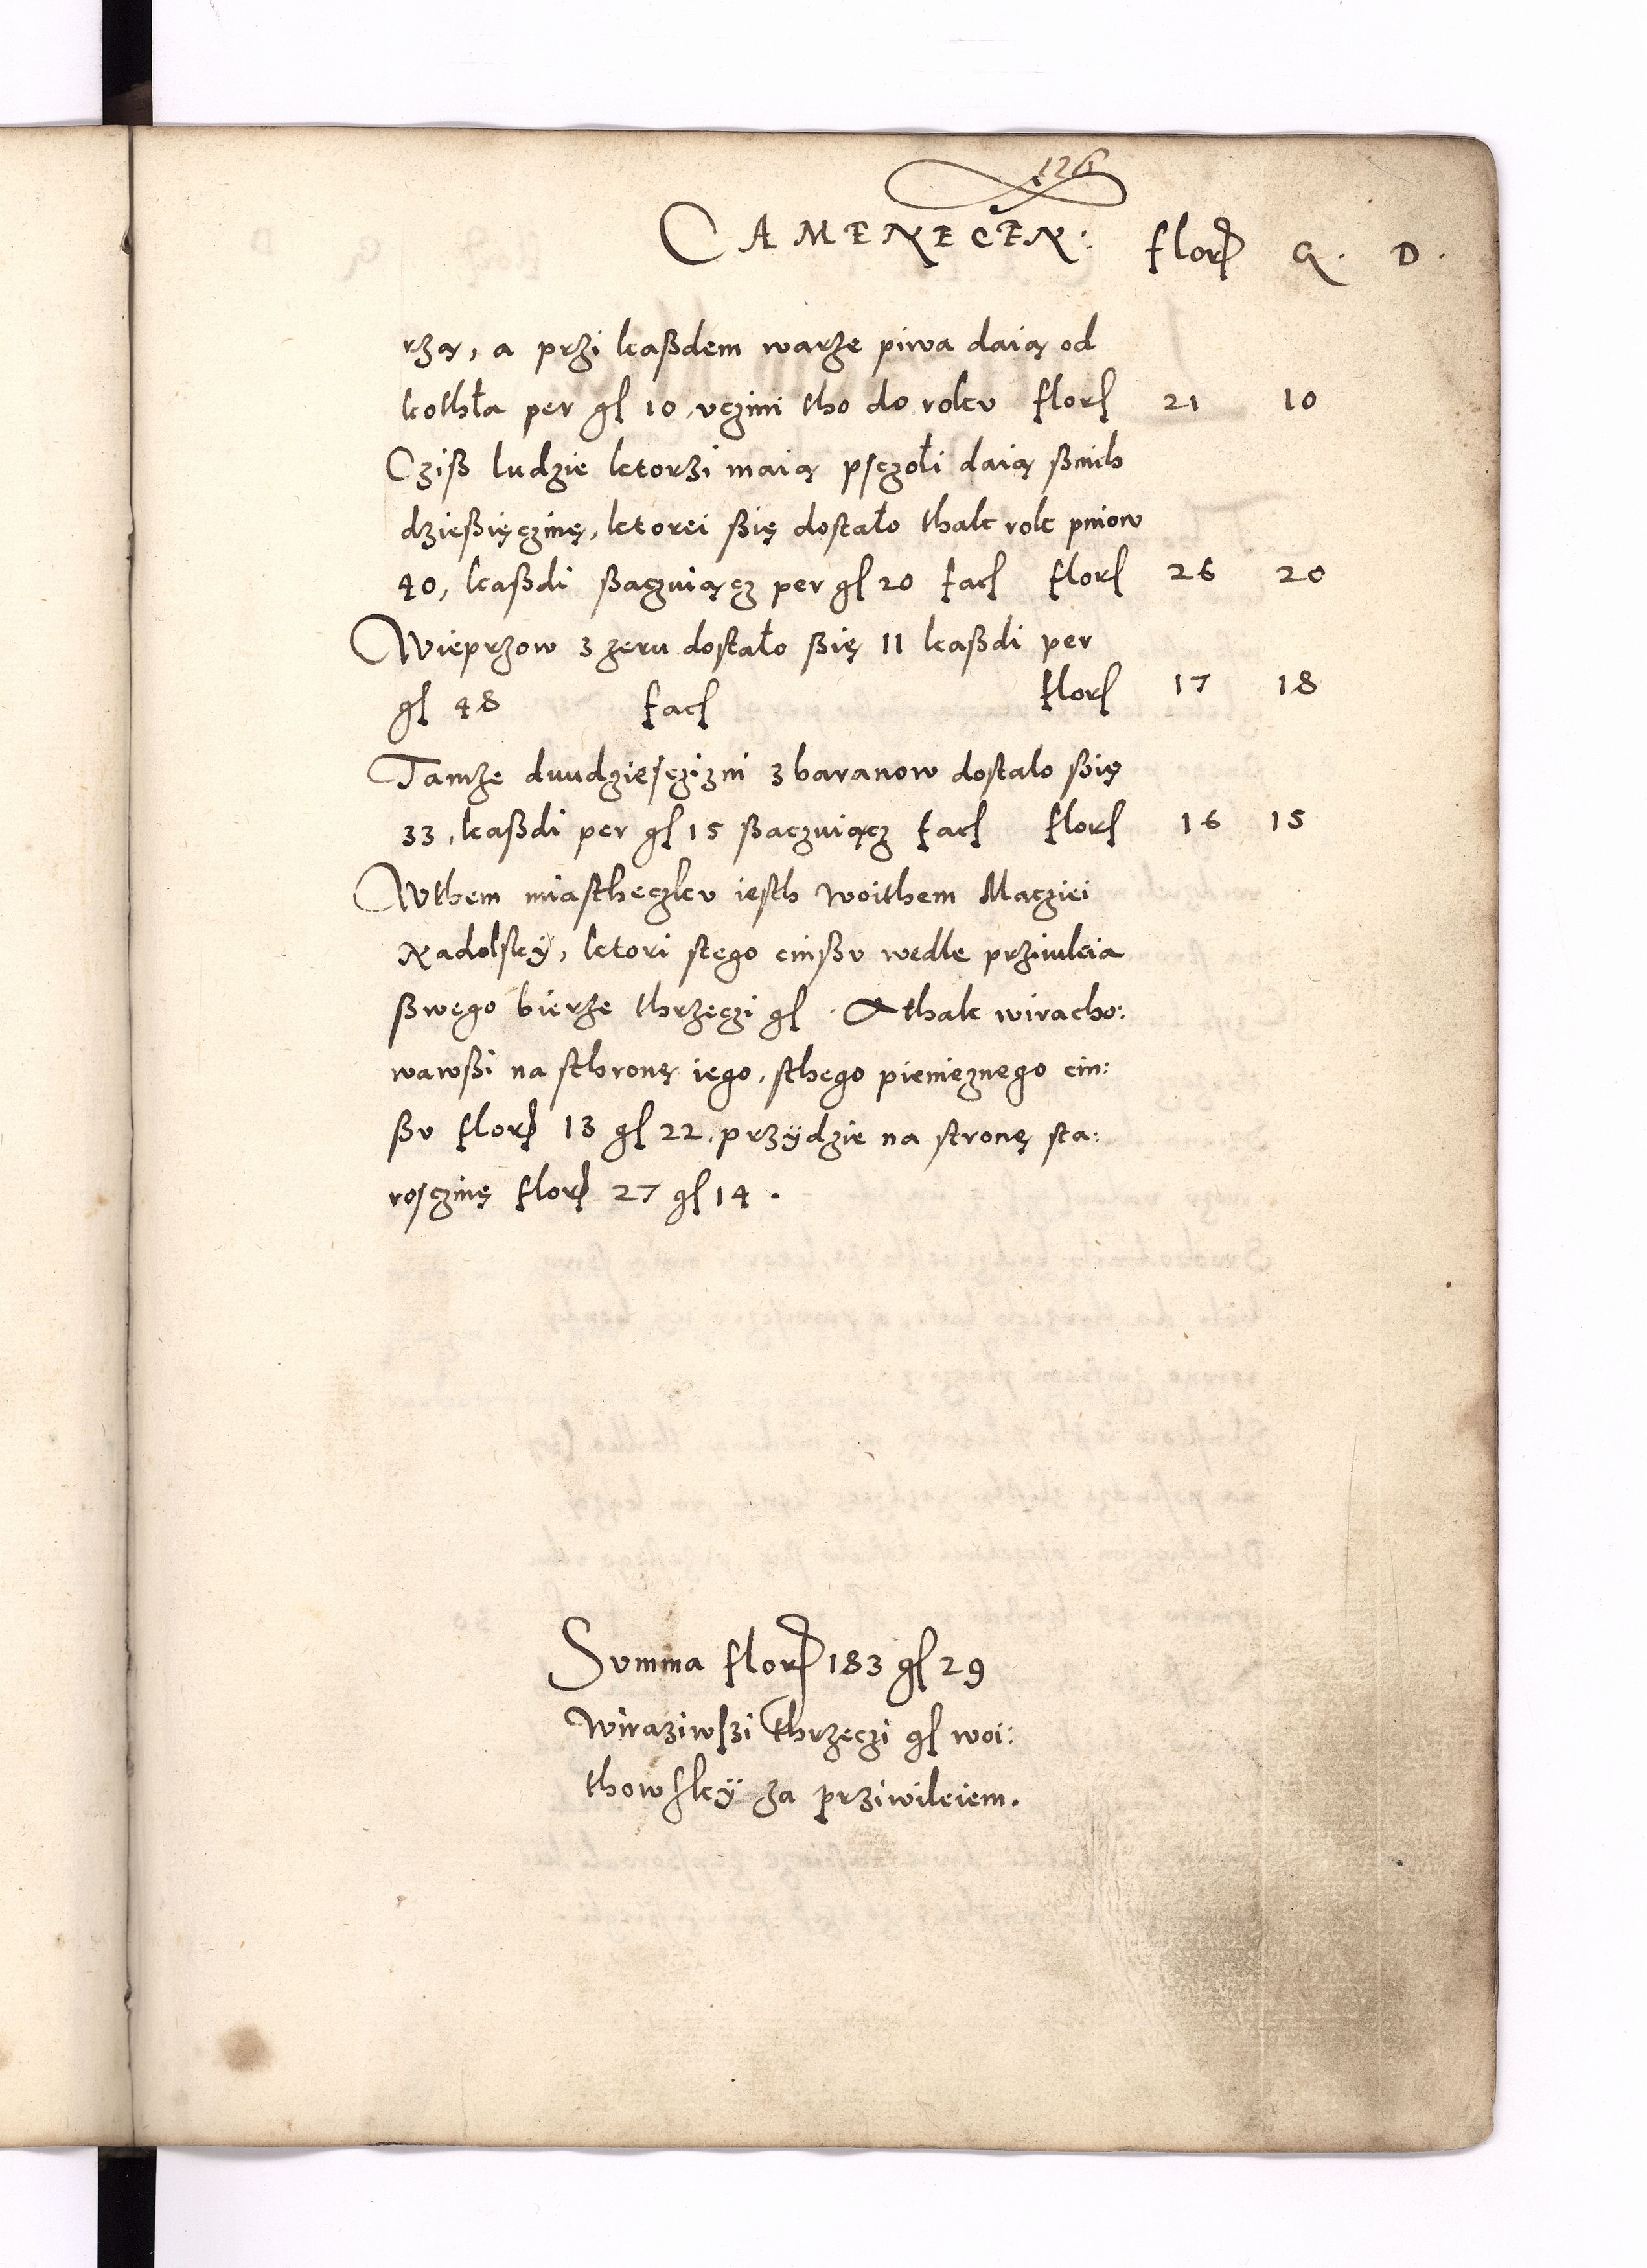 126
CAMENECEN: flor G. D.
rzą, a przi kaßdem warze piwa daią od
kothła per gl 10, vczini tho do rokv flor 21 10
Cziß ludzie ktorzi maią psczołi daią ßnich
dzießięczinę, ktorei ßię dostało thak rok pniow
40, kaßdi ßaczuiącz per gl 20 fac flor 26 20
Wieprzow z zeru dostało ßię 11 kaßdi per
gl 48 fac flor 17 18
Tamze dwudziesczizni z baranow dostalo ßię
33, kaßdi per gl 15 ßaczuiącz fac flor 16 15
Wthem miastheczkv iesth woithem Macziei
Nadolskÿ, ktori stego cinßv wedle prziwleia
ßwego bierze thrzeczi gl. A thak wiracho:
wawßi na sthronę iego, sthego pienieznego cin:
ßv flor 13 gl 22, przÿdzie na stronę sta:
rosczinę flor 27 gl 14.
Svmma flor 183 gl 29
Wiraziwszi thrzeczi gl woi:
thowskÿ za prziwileiem.